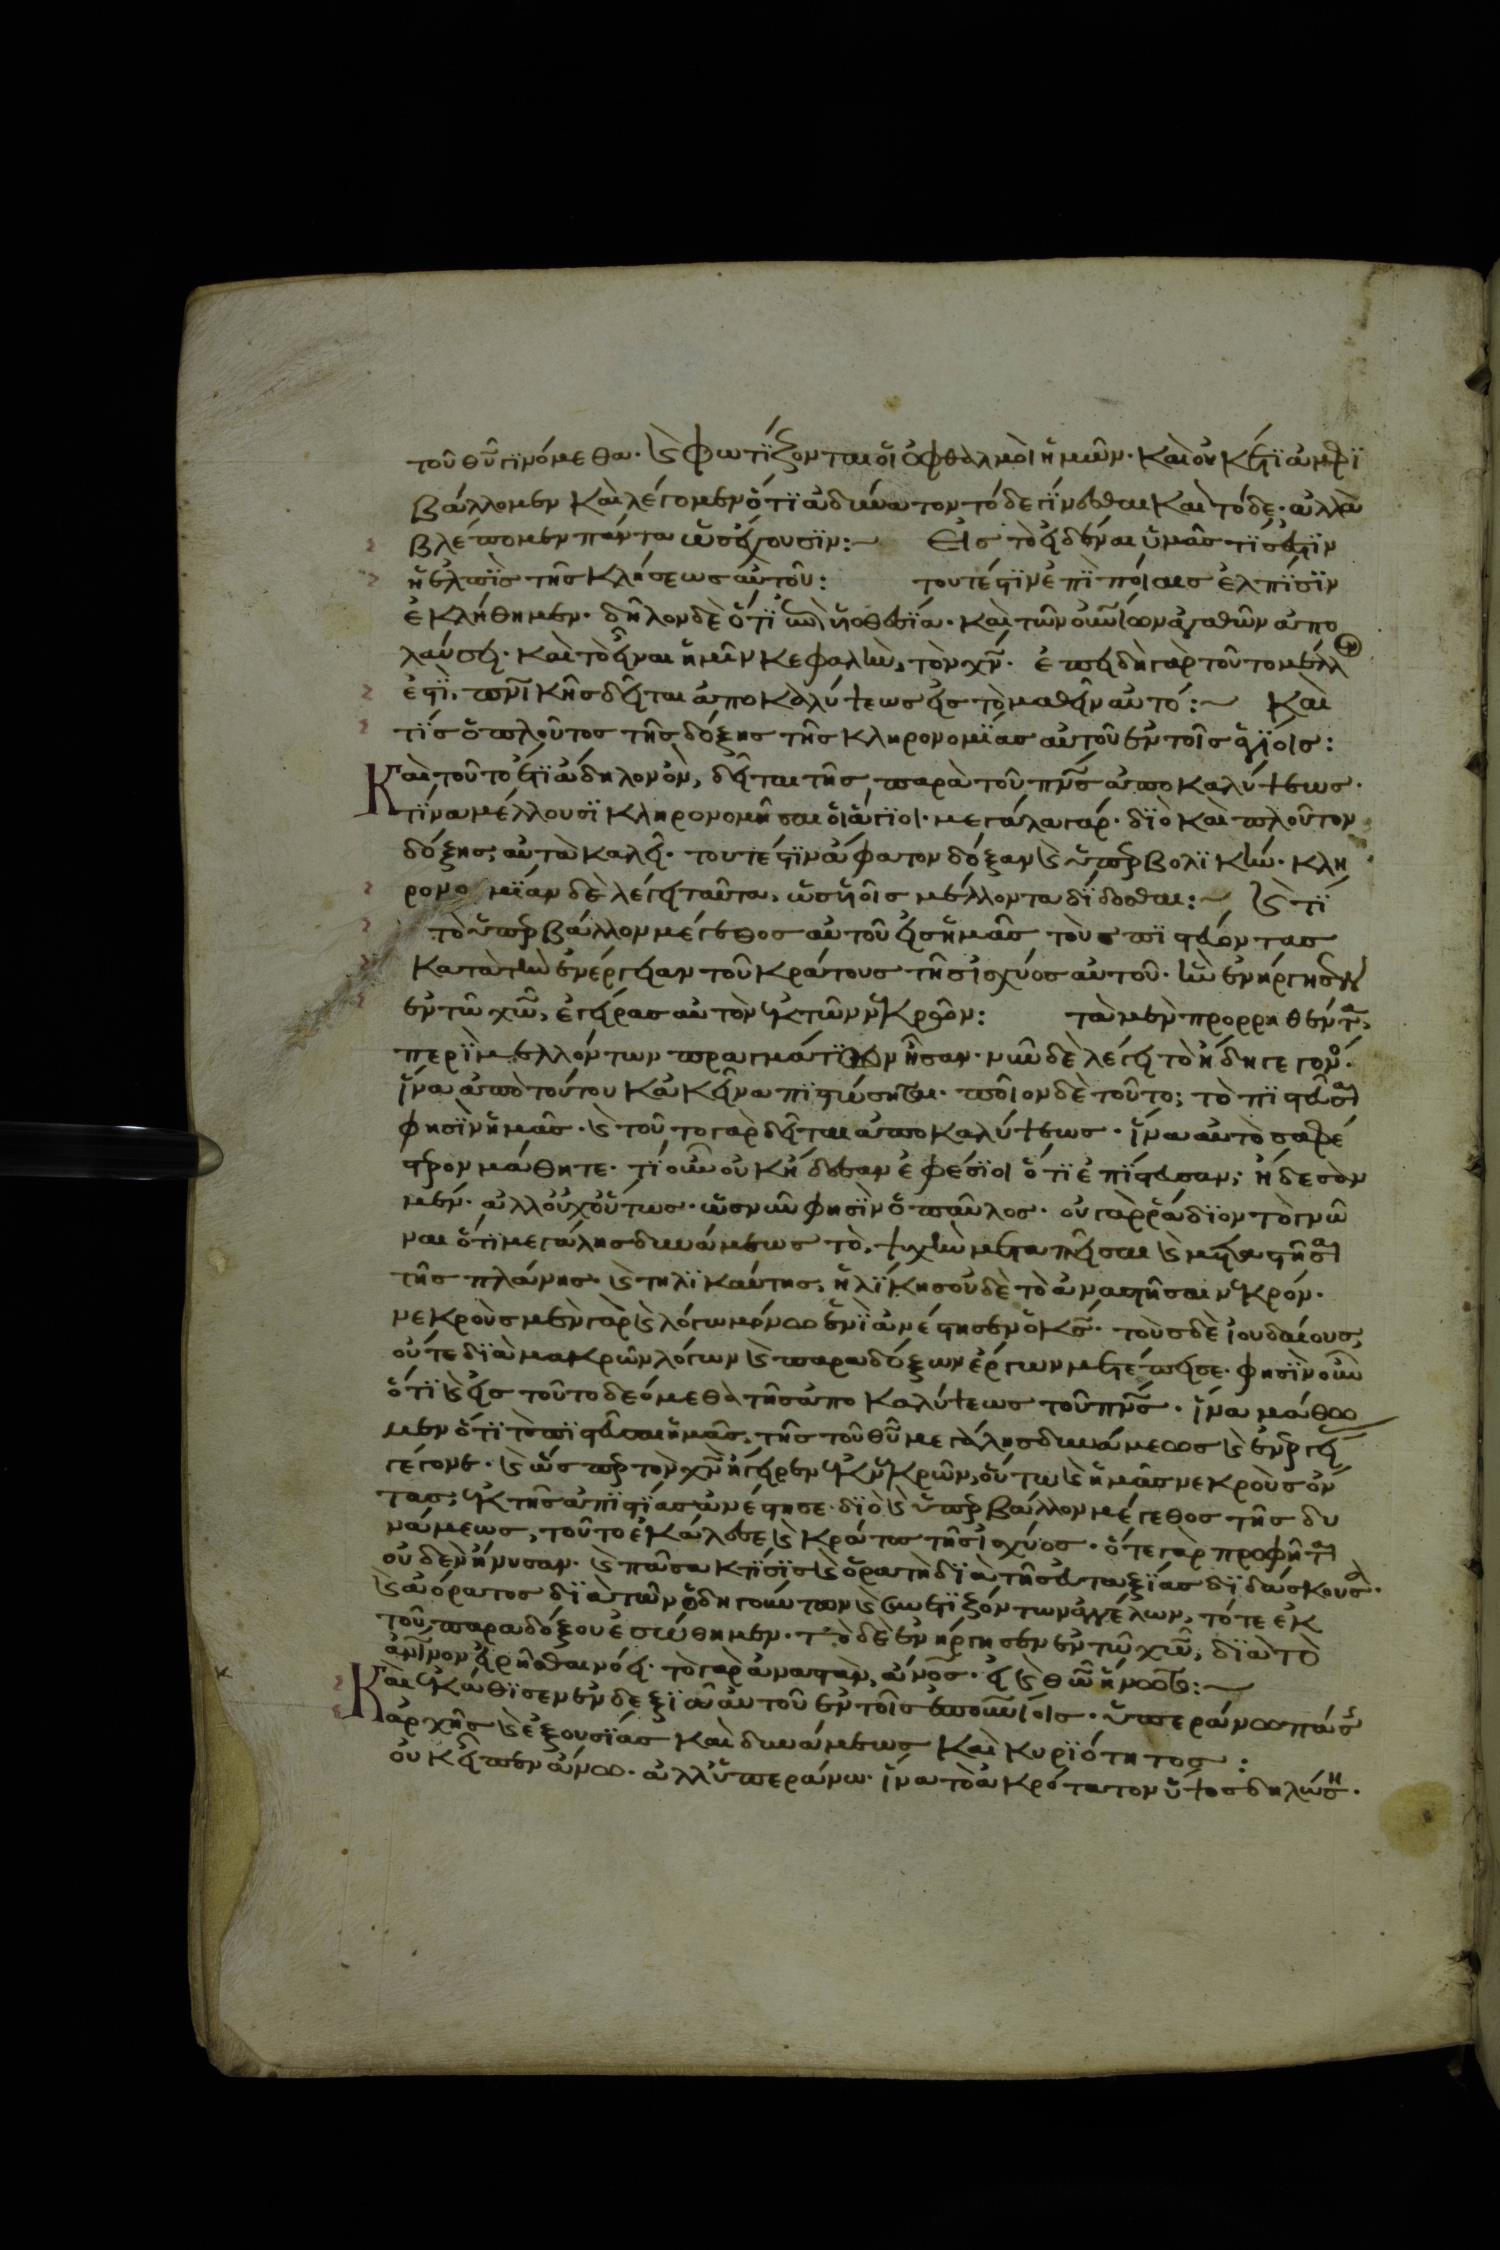 τοῦ θυ γινόμεθα· καὶ φωτίζονται οἱ ὀφθαλμοὶ ἡμῶν· καὶ οὐκέτι ἀμφι
βάλλομεν καὶ λέγομεν ὅτι ἀδύνατον τόδε γίνεσθαι καὶ τόδε· ἀλλὰ
βλέπομεν πάντα ὡς ἔχουσιν:~ Εἰς τὸ εἰδέναι ὑμᾶς τίς ἐστιν
ἡ ἐλπὶς τῆς κλήσεως αὐτοῦ: τουτέστιν ἐπὶ ποίαις ἐλπίσιν
ἐκλήθημεν· δῆλον δὲ ὅτι ἐπὶ υἱοθεσία· καὶ τῶν οὐνίων ἀγαθῶν ἀπο
λαύσει· καὶ τὸ εἶναι ἡμῖν κεφαλὴν, τὸν χν· ἐπειδὴ γὰρ τοῦτο μέλλον
ἐστί, πνικῆς δεῖται ἀποκαλύψεως εἰς τὸ μαθεῖν αὐτό:~ Καὶ
τίς ὁ πλοῦτος τῆς δόξης τῆς κληρονομίας αὐτοῦ ἐν τοῖς ἁγίοις:
Καὶ τοῦτο ἔτι ἄδηλον ὂν, δεῖται τῆς παρὰ τοῦ πνς ἀποκαλύψεως·
τίνα μέλλουσι κληρονομῆσαι οἱ ἅγιοι· μεγάλα γάρ· διὸ καὶ πλοῦτον
δόξης, αὐτὰ καλεῖ· τουτέστιν ἄφατον δόξαν καὶ ὑπερβολικήν· κλη
ρονομίαν δὲ λέγει ταῦτα, ὡς υἱοῖς μέλλοντα δίδοσθαι:~ καὶ τί
τὸ ὑπερβάλλον μέγεθος αὐτοῦ εἰς ἡμᾶς τοὺς πιστεύοντας
κατὰ τὴν ἐνέργειαν τοῦ κράτους τῆς ἰσχύος αὐτοῦ· ἣν ἐνήργησεν
ἐν τῷ χω, ἐγείρας αὐτὸν ἐκ τῶν νεκρῶν: τὰ μὲν προρρηθέντα,
περὶ μελλόντων πραγμάτων ἦσαν· νῦν δὲ λέγει τὸ ἤδη γεγονός·
ἵνα ἀπὸ τούτου κἀκεῖνα πιστώσηται· ποῖον δὲ τοῦτο; τὸ πιστεῦσαι
φησὶν ἡμᾶς· καὶ τοῦτο γὰρ δεῖται ἀποκαλύψεως· ἵνα αὐτὸ σαφέ
στερον μάθητε· τί οὖν οὐκ ᾔδεισαν ἐφέσιοι ὅτι ἐπίστευσαν; ᾔδεσαν
μέν· ἀλλ' οὐχ οὕτως· ὡς νῦν φησὶν ὁ παῦλος· οὐ γὰρ ῥάδιον τὸ γνῶ
ναι ὅτι μεγάλης δυνάμεως τὸ, ψυχὴν μεταπεῖσαι καὶ μεταστῆσαι
τῆς πλάνης· καὶ τηλικαύτης, ἡλίκης οὐδὲ τὸ ἀναστῆσαι νεκρόν·
νεκροὺς μὲν γὰρ καὶ λόγω μόνω ἑνὶ ἀνέστησεν ὁ κς· τοὺς δὲ ἰουδαίους,
οὔτε διὰ μακρῶν λόγων καὶ παραδόξων ἔργων μετέπεισε· φησὶν οὖν
ὅτι καὶ εἰς τοῦτο δεόμεθα τῆς ἀποκαλύψεως τοῦ πνς· ἵνα μάθω
μεν ὅτι τὸ πιστεῦσαι ἡμᾶς, τῆς τοῦ θυ μεγάλης δυνάμεως καὶ ἐνεργείας
γέγονε· καὶ ὥσπερ τὸν χν ἤγειρεν ἐκ νεκρῶν, οὕτω καὶ ἡμᾶς νεκροὺς ὄν
τας, ἐκ τῆς ἀπιστίας ἀνέστησε· διὸ καὶ ὑπερβάλλον μέγεθος τῆς δυ
νάμεως, τοῦτο ἐκάλεσε καὶ κράτος τῆς ἰσχύος· ὅτε γὰρ προφῆται
οὐδὲν ἤνυσαν· καὶ πᾶσα κτίσις καὶ ὁρατὴ διὰ τῆς εὐταξίας διδάσκουσα·
καὶ ἀόρατος διὰ τῶν ὁδηγούντων καὶ φωτιζόντων ἀγγέλων, τότε ἐκ
τοῦ παραδόξου ἐσώθημεν· Τὸ δὲ ἐνήργησεν ἐν τῷ χω, διὰ τὸ
ἀνινον εἰρῆσθαι νόει· τὸ γὰρ ἀναστὰν, ἀνος· εἰ καὶ θω ἥνωται:~
Καὶ ἐκάθισεν ἐν δεξιᾷ αὐτοῦ ἐν τοῖς ἐπουνίοις· ὑπεράνω πάσης
ἀρχῆς καὶ ἐξουσίας καὶ δυνάμεως καὶ κυριότητος:
οὐκ εἶπεν ἄνω· ἀλλ' ὑπεράνω· ἵνα τὸ ἀκρότατον ὕψος δηλώση·